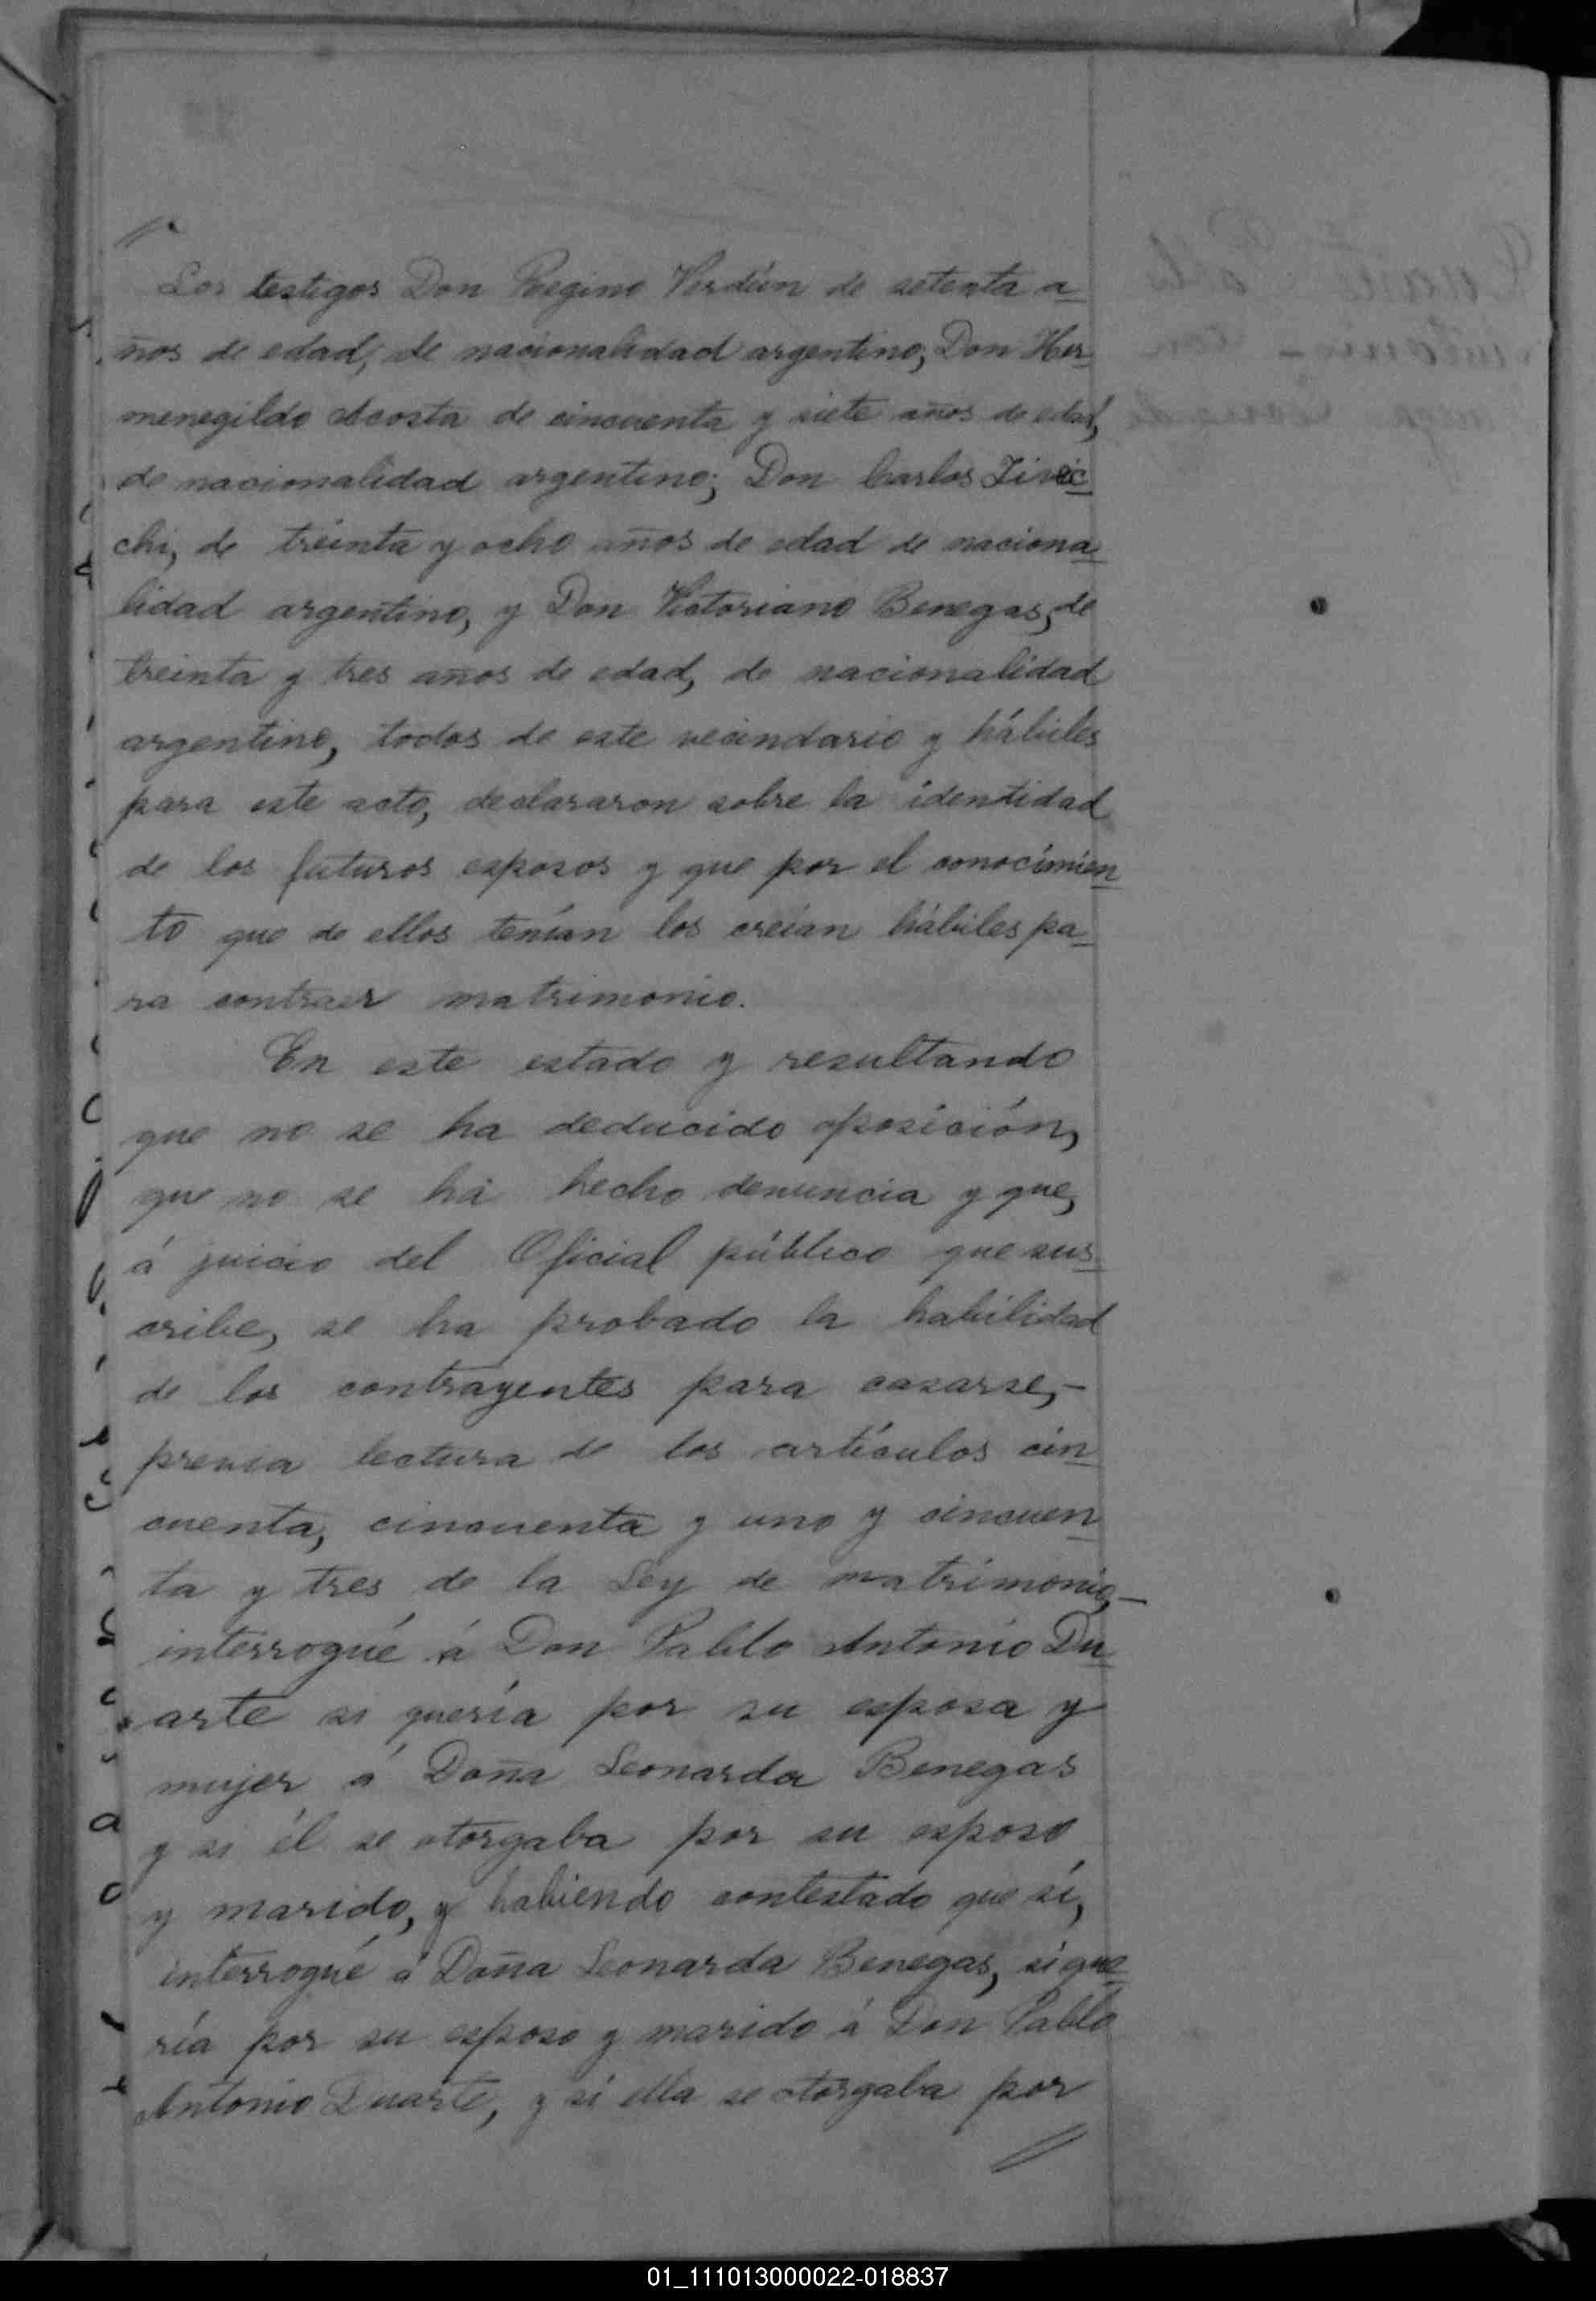 Los testigos Don Regino Verdún de setenta a-
ños de edad, de nacionalidad argentino; Don Her-
menegildo Acosta de cincuenta y siete años de edad,
de nacionalidad argentino; Don Carlos
chi, de treinta y ocho años de edad de naciona-
lidad argentino, y Don Victoriano Benegas, de
treinta y tres años de edad, de nacionalidad
argentino, todos de este vecindario y hábiles
para este acto, declararon sobre la identidad
de los futuros esposos y que por el conocimien-
to que de ellos tenían los creían hábiles pa-
ra contraer matrimonio.
En este estado y resultando
que no se ha deducido oposición,
que no se ha hecho denuncia y que,
á juicio del Oficial público que sus-
cribe, se ha probado la habilidad
de los contrayentes para casarse,-
previa lectura de los artículos cin-
cuenta, cincuenta y uno y cincuen-
ta y tres de la Ley de matrimonio,-
interrogué á Don Pablo Antonio Du-
arte si quería por su esposa y
mujer á Doña Leonarda Benegas
y si él se otorgaba por su esposo
y marido, y habiendo contestado que sí,
interrogué á Doña Leonarda Benegas, si que-
ría por su esposo y marido á Don Pablo
Antonio Duarte, y si ella se otorgaba por
01_111013000022-018837